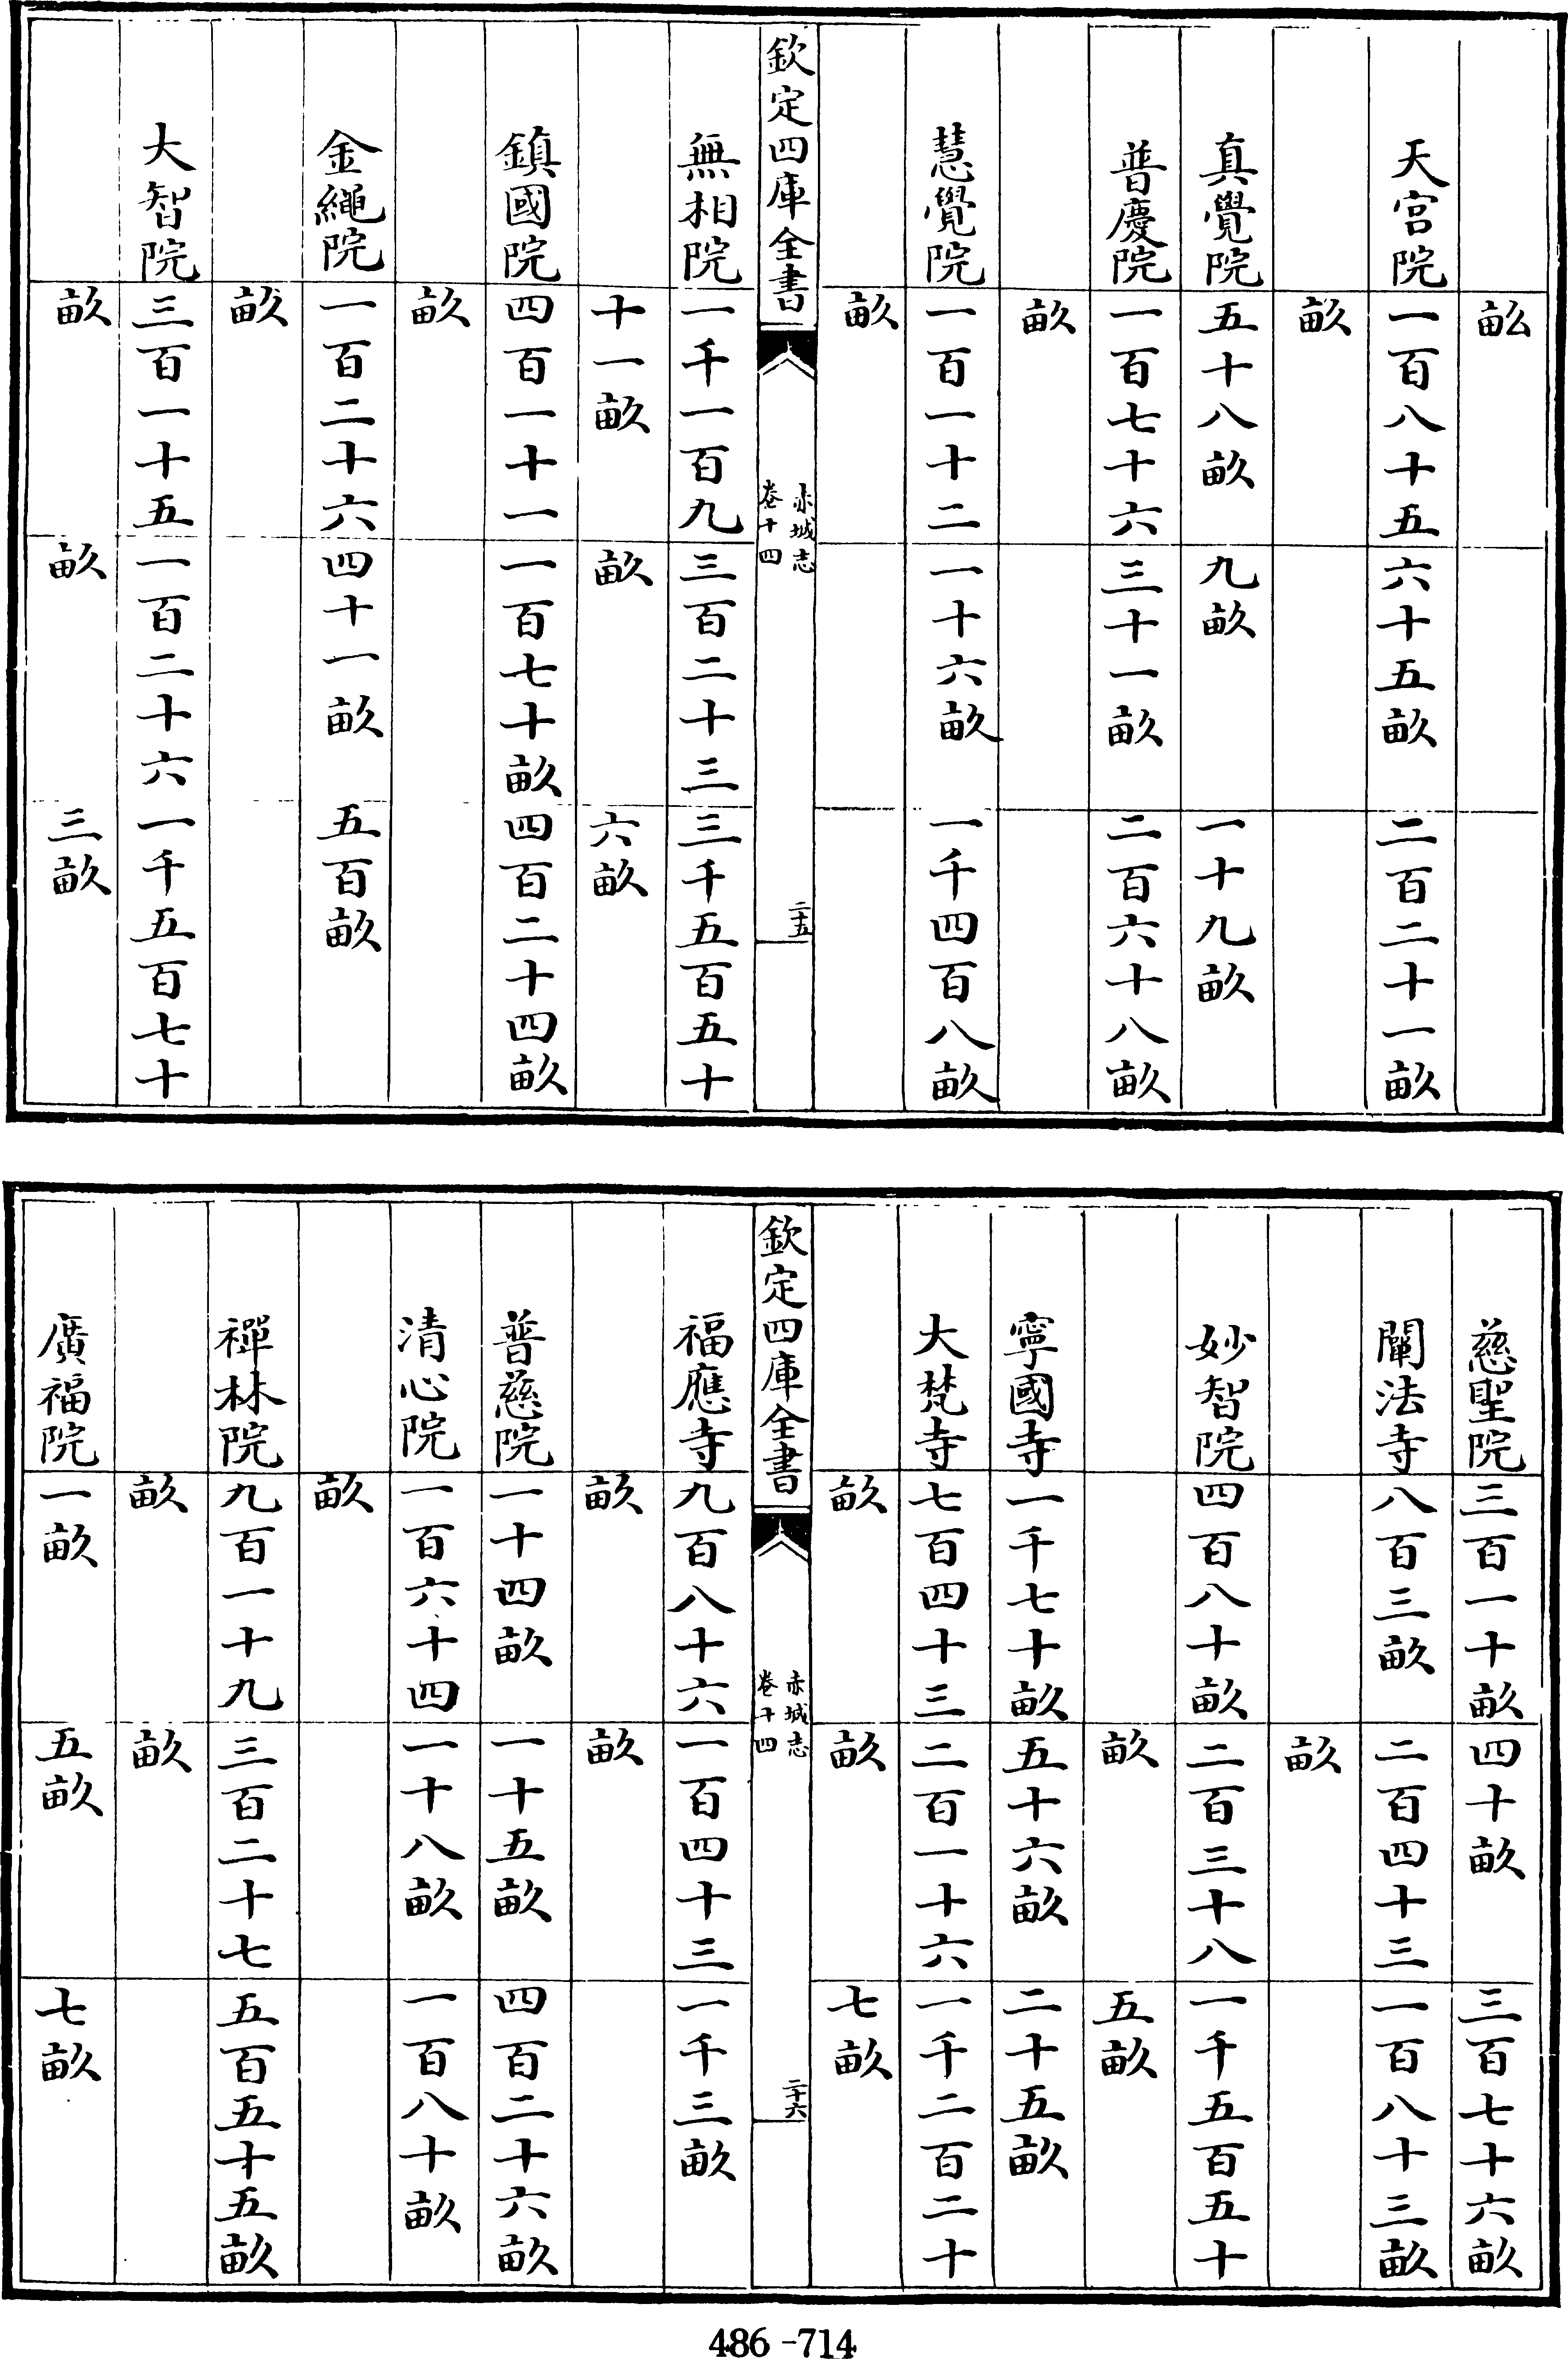 畆
天宫院 一百八十五 六十五畆 二百二十一畆
畆
真覺院 五十八畆 九畆 一十九畆
普慶院 一百七十六 三十一畆 二百六十八畆
畆
慧覺院 一百一十二 一十六畆 一千四百八畆
畆
欽定四庫全書
赤城志
卷十四
二十五
無相院 一千一百九 三百二十三 三千五百五十
十一畆 畆 六畆
鎮國院 四百一十一 一百七十畆 四百二十四畆
畆
金繩院 一百二十六 四十一畆 五百畆
畆
大智院 三百一十五 一百二十六 一千五百七十
畆 畆 三畆
慈聖院 三百一十畆 四十畆 三百七十六畆
闡法寺 八百三畆 二百四十三 一百八十三畆
畆
妙智院 四百八十畆 二百三十八 一千五百五十
畆 五畆
寧國寺 一千七十畆 五十六畆 二十五畆
大梵寺 七百四十三 二百一十六 一千二百二十
畆 畆 七畆
欽定四庫全書
赤城志
卷十四
二十六
福應寺 九百八十六 一百四十三 一千三畆
畆 畆
普慈院 一十四畆 一十五畆 四百二十六畆
清心院 一百六十四 一十八畆 一百八十畆
畆
禪林院 九百一十九 三百二十七 五百五十五畆
畆 畆
廣福院 一畆 五畆 七畆
486-714